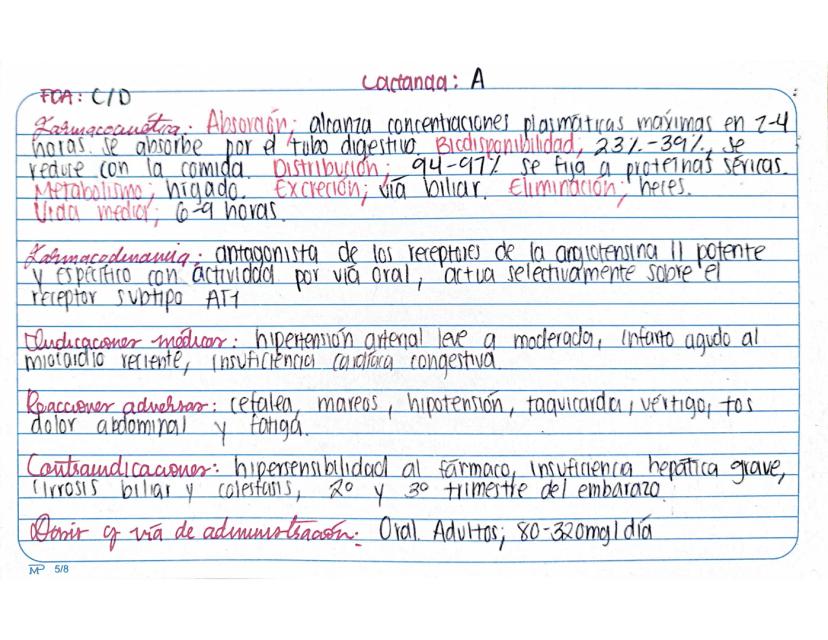 Lactancia: A
FDA: C/D
Farmacocinética: Absorción; alcanza concentraciones plasmáticas máximas en 2-4
horas. Se absorbe por el tubo digestivo. Biodisponibilidad, 23%-39%, se
reduce con la comida. Distribución; 94-97% se fija a proteínas séricas.
Metabolismo; hígado. Excreción; vía biliar. Eliminación; heces.
Vida media; 6-9 horas.
Farmacodinamia: antagonista de los receptores de la angiotensina II potente
y específico con actividad por vía oral, actua selectivamente sobre el
receptor subtipo AT1
Indicaciones médicas: hipertensión arterial leve a moderada, infarto agudo al
miocardio reciente, insuficiencia cardiaca congestiva.
Reacciones adversas: cefalea, mareos, hipotensión, taquicardia, vértigo, tos
dolor abdominal y fatiga.
Contraindicaciones: hipersensibilidad al fármaco, insuficiencia hepática grave,
cirrosis biliar y colestasis, 2º y 3º trimestre del embarazo
Dosis y vía de administración: Oral. Adultos; 80-320mg/día
MP 5/8